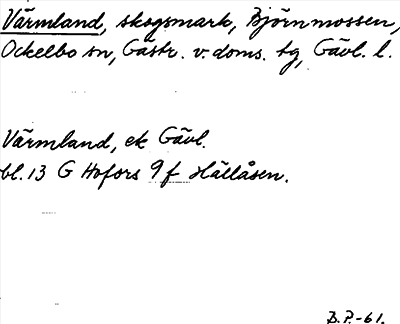 Värmland, skogsmark, Björnmossen,
Ockelbo sn, Gästr. v. doms. tg, Gävl. l.
Värmland, ek Gävl.
bl. 13 G Hofors 9 f Hällåsen.
B.P.-61.